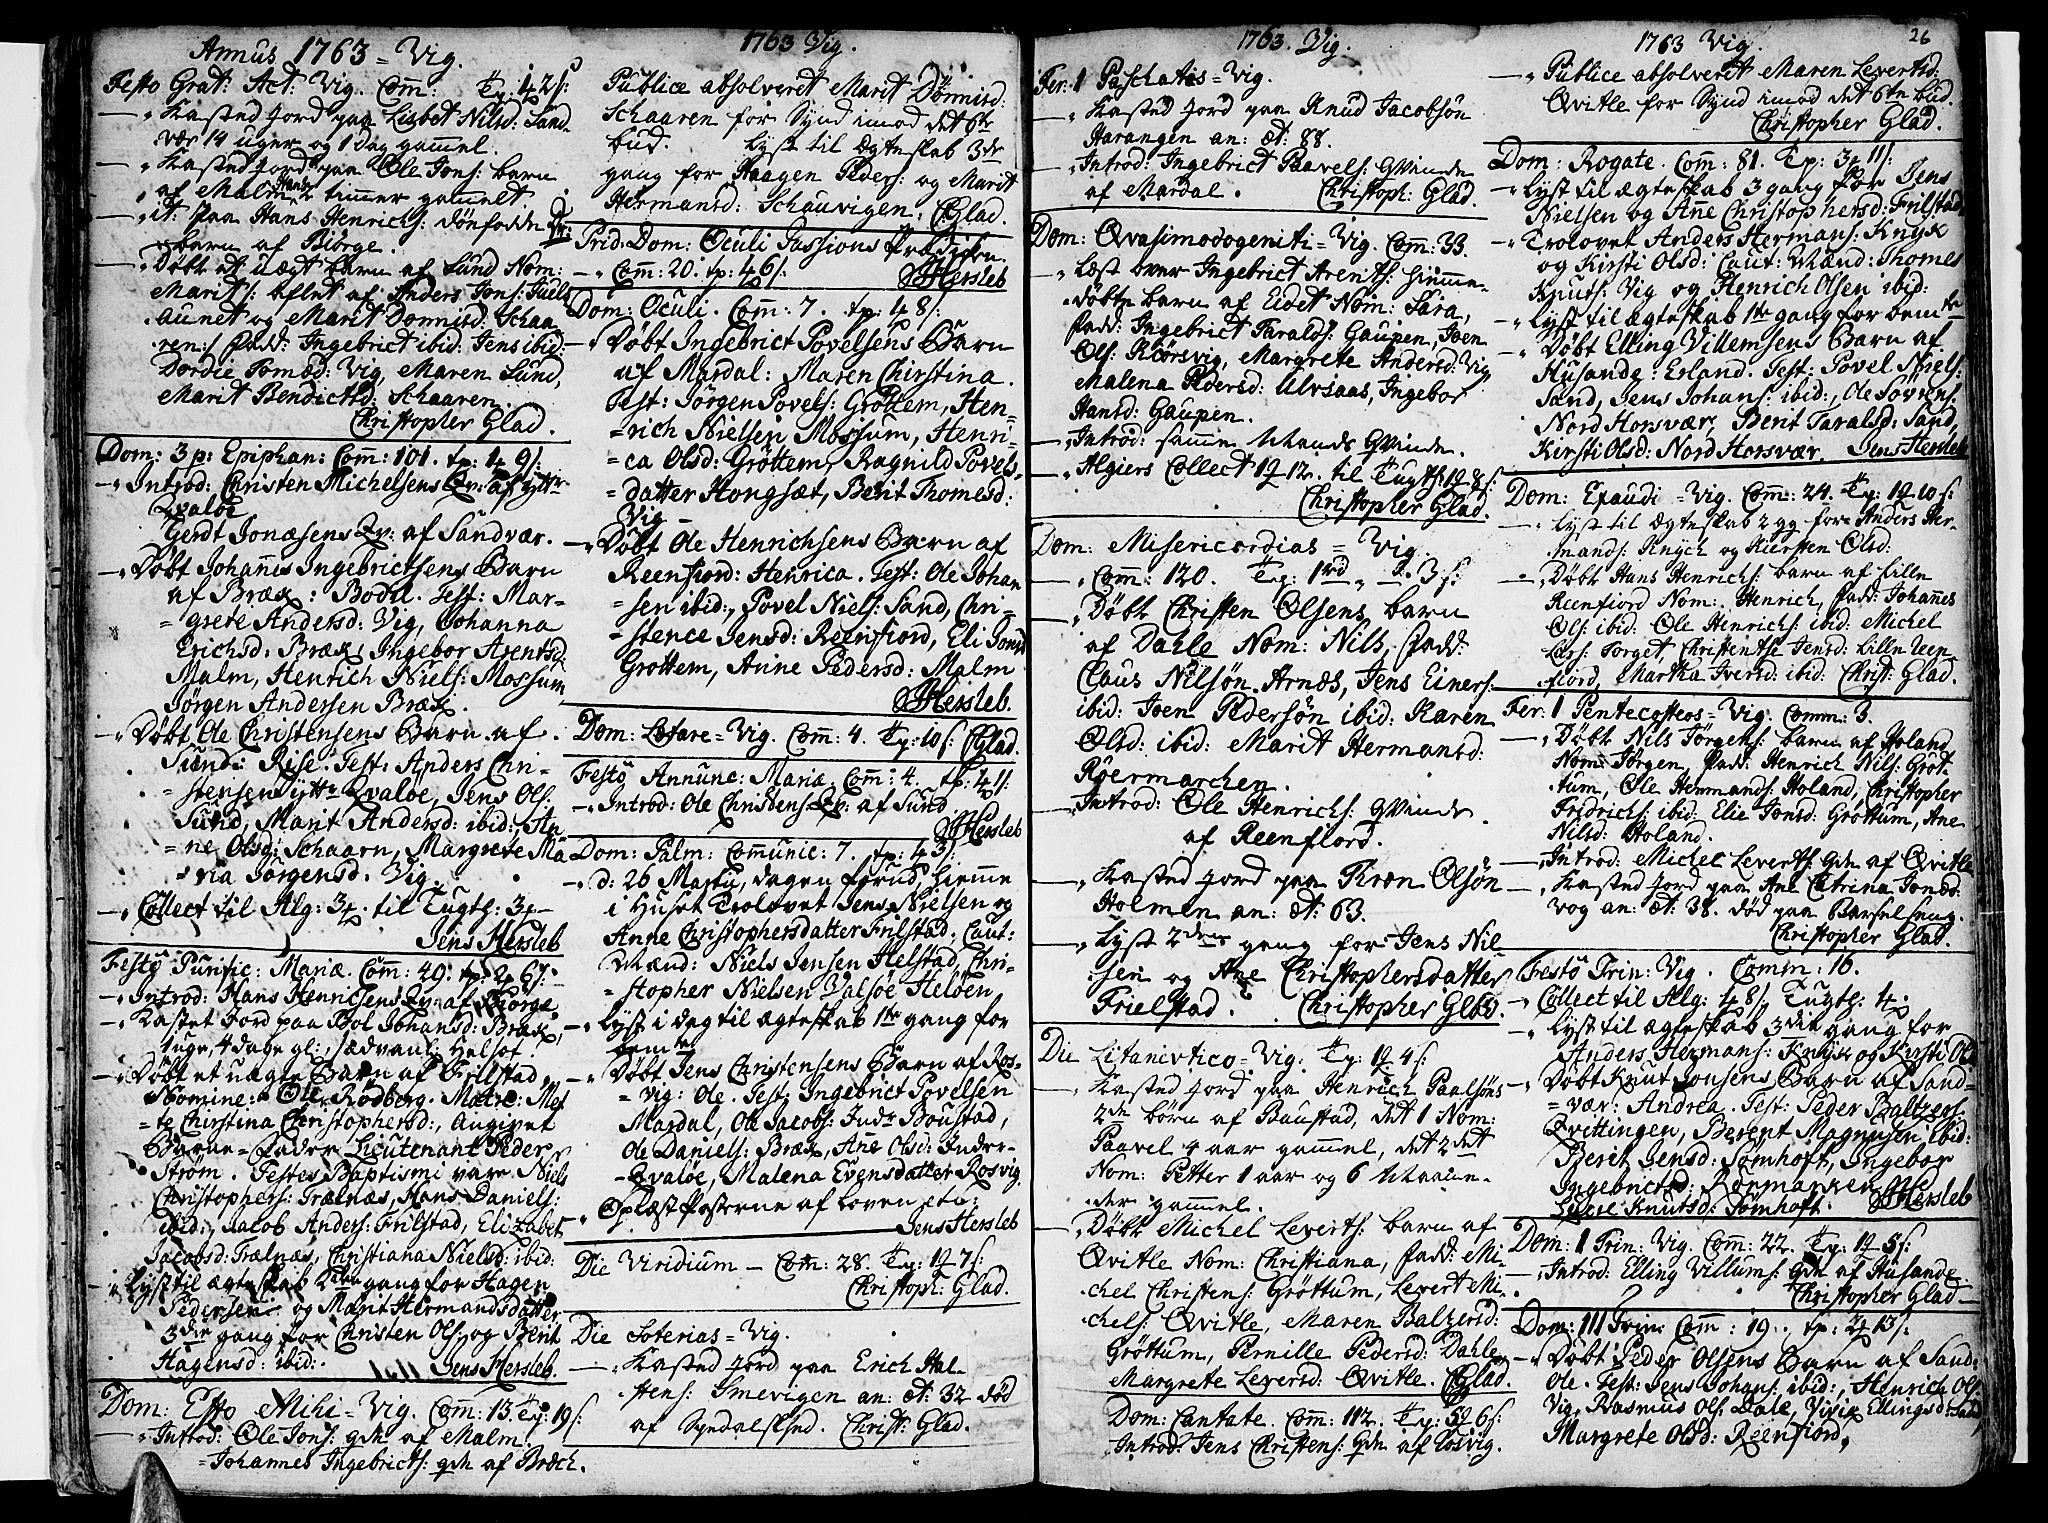 Annus 1763 = Vig.
Festo Grat: Act: Vig. Comm: Tp: 42 s:
— „ Kasted Jord paa Lisbet Nilsd: Sand-
vær 14 uger og 1 Dag gammel.
— „ Kasted Jord paa Ole Jons: barn
af Malm timmer gammelt
— „ it: paa Hans Henrichs: dönfödde
barn af Biörge.
— „ Döbt et uægt barn af Sund Nom:
Marit /: aflet af Anders Jons: Juels
aunet og Marit Dönnisd: Schaa
ren :/ fadd: Ingebrict ibid: Jens ibid:
Dordie Tomæd: Vig, Maren Sund,
Marit Bendictsd: Schaaren.
Christopher Glad.
Dom: 3 p: Epiphan: Comm: 101. tp: 1 9 s:
— „ Introd: Christen Michelsens Qv: af ytter
Qvaløe
Gerdt Jonæsens Qv: af Sandvær.
— „ Döbt Johannis Ingebrictsens Barn
af Bræx: Bodil. Test: Mar-
= grete Andersd: Vig, Johanna
Erichsd. Bræx, Ingebor Arentsd
Malm, Henrich Niels: Mossum
Jörgen Andersen Bræx.
— „ Döbt Ole Christensens Barn af
Sund: Rise. Test: Anders Chri-
= stensen Ytter Qvaløe, Jens Ols:
Sund, Marit Andersd: ibid:, An
= ne Olsd: Schaarn, Margrete Ma
= ria Jörgensd. Vig.
— „ Collect til Alg: 3 til Tugth: 3
Jens Hersleb
Festo Purific: Mariæ. Comm: 49. tp: 2 6 s:
— „ Introd: Hans Henrichsens Qv: af Biörge.
— „ Kastet Jord paa Bol Johansd: Bræx,
1 uge, 4 dage gl:, sædvanl: Helsot.
— „ Döbt et uægte Barn af Frilstad,
Nomine: Ole Rödberg. Matre: Met
= te Chirstina Christophersd:, Angivet
Barne-Fader Lieutenant Peder
Ström. Testes Baptismi vare Niels
Christophers: Trælnæs, Hans Daniels:
ibid:, Jacob Anders: Frilstad, Elizabet
Jacobsd: Trælnæs, Christiana Nielsd: ibid:
— „ Lyst til ægteskab 2den gang for Hagen
Pedersen og Marit Hermandsdatter
3die gang for Christen Ols: og Berit
Hagensd: ibid:.
Jens Hersleb
Dom: Esto Mihi = Vig. Comm: 13. Tp: 19 s:
— „ Introd: Ole Jons: qvin af Malm.
= Johannes Ingebricts: qvin af Bræch.
1763 Vig.
Publice absolveret Marit Dönnisd:
Schaaren for Synd imod det 6te
bud. Lyst til Ægteskab 3die
gang for Haagen Peders: og Marit
Hermansd: Schauvigen. CGlad.
Prid: Dom: Oculi Passions Prædiken.
— „ Comm: 20. tp: 46 s:
JHersleb
Dom: Oculi. Comm: 7. tp: 1 8 s:
— „ Döbt Ingebrict Povelsens Barn
af Mardal: Maren Chirstina.
Test: Jörgen Povels: Gröttem, Hen-
= rich Nielsen Mossum, Henri-
= ca Olsd: Gröttem, Ragnild Povels
= datter Hongsæt, Berit Thomesd:
Vig
— „ Döbt Ole Henrichsens Barn af
Reenfiord: Henrica. Test: Ole Johan
= sen ibid:, Povel Niels: Sand, Chri-
= stence Jensd: Reenfiord, Eli Jonsd
Gröttem, Anne Pedersd: Malm
JHersleb.
Dom: Letare = Vig. Comm: 4. Tp: 10 s: CGlad.
Festo Annunc: Mariæ. Comm: 4. tp: 1 s:
— „ Introd: Ole Christens: Qv: af Sund.
JHersleb
Dom: Palm: Communic: 7. tp: 43 s:
— „ d: 26 Martij, dagen forud, hiemme
i Huset Trolovet Jens Nielsen og
Anne Christophersdatter Frilstad, Caut:
Mænd: Niels Jensen Helstad, Chri-
= stopher Nielsen Valsöe Heloen
— „ Lyst i dag til ægteskab 1te gang for
bemte
— „ Döbt Jens Christensens Barn af Ros-
= vig: Ole. Test: Ingebrict Povelsen
Mardal, Ole Jacobs: Indr Boustad,
Ole Daniels: Bræx, Ane Olsd: Inder-
= Qvaløe, Malena Evensdatter Rosvig.
— „ Oplæst Posterne af Loven etc:
Jens Hersleb
Die Viridium — Com: 28. Tp: 12 7 s:
Christoph: Glad.
Die Soterias = Vig.
— „ Kasted Jord paa Erich Hal-
stens: Smevigen an: æt: 32 död
af Christ: Glad.
1763. Vig.
Fer: 1 Paschates = Vig.
— „ Kasted Jord paa Knud Jacobsön
Harangen an: æt: 88.
— „ Introd: Ingebrict Paavels: Qvinde
af Mardal. Christoph: Glad.
Dom: Qvasimodogeniti = Vig. Com: 33.
— „ Læst over Ingebrict Arents: hiemme-
döbte barn af Eidet Nom: Sara,
fadd: Ingebrict Taralds: Gaupen, Joen
Ols: Kiörsvig, Margrete Andersd: Vig
Malena Pedersd: Ulvsaas, Ingebor
Hansd: Gaupen.
— „ Introd: samme Mands Qvinde.
— „ Algiers Collect 12 12. til Tugth: 12 8 s:
Christopher Glad.
Dom: Misericordias = Vig.
— „ Comm: 120. Tp: 1 rd „ 3 s:
— „ Döbt Christen Olsens barn
af Dahle Nom: Nils, fadd:
Claus Nilsön Arnæs, Jens Einers:
ibid: Joen Pedersön ibid: Karen
Olsd: ibid: Marit Hermansd:
Röermarchen.
— „ Introd: Ole Henrichs: Qvinde
af Reenfiord.
— „ Kasted Jord paa Kræn Olsön
Holmen an: æt: 63.
— „ Lyst 2den gang for Jens Nil
sen og Ane Christophersdatter
Frielstad. Christopher Glad.
Die Litanevtico = Vig: Tp: 12 4 s:
— „ Kasted Jord paa Henrich Paalsöns
2de börn af Baustad, det 1 Nom:
Paavel 4 aar gammel, det 2det
Nom: Petter 1 aar og 6 Maane-
der gammel.
— „ Döbt Michel Leverts: barn af
Qvitle Nom: Christiana, fadd: Mi-
chel Christens: Gröttum, Levert Mi-
chels: Qvitle, Maren Baltzersd:
Gröttum, Pernille Pedersd: Dahle
Margrete Leversd: Qvitle. CGlad.
Dom: Cantate. Comm: 112. Tp: 52 6 s:
Introd: Jens Christens: Qvin af Rosvig.
1763 Vig.
26
— „ Publice absolveret Maren Levertsd:
Qvitle for Synd imod det 6te bud.
Christopher Glad.
Dom: Rogate. Comm: 81. Tp: 3 11 s:
— „ Lyst til ægteskab 3 gang for Jens
Nielsen og Anne Christophersd: Frilstad
— „ Trolovet Anders Hermans: Knyx
og Kirsti Olsd: Caut: Mænd: Thomes
Knuts: Vig og Henrich Olsen ibid:
— „ Lyst til ægteskab 1te gang for bemte
— „ Döbt Elling Villemsens Barn af
Husande: Erland. Test: Povel Niels:
Sand, Jens Johans: ibid:, Ole Sörens:
Nord Horsvær, Berit Taralsd: Sand,
Kirsti Olsd: Nord Horsvær. Jens Hersleb
Dom: Exaudi = Vig. Comm: 24. Tp: 12 10 s:
— „ Lyst til Ægteskab 2 gg for Anders Her-
mands: Knych og Kiersten Olsd:
— „ Döbt Hans Henrichs: barn af Lille
Reenfiord Nom: Henrich, fadd: Johannes
Ols: ibid: Ole Hinrichs: ibid: Michel
Lars: Torget, Christentse Jensd: Lille Reen
fiord, Martha Iversd: ibid: Christ: Glad.
Fer: 1 Pentecosteos = Vig. Comm: 3.
— „ Döbt Nils Jörgens: barn af Holand
Nom: Jörgen, fadd: Henrich Nils: Gröt
tum, Ole Hermands: Holand, Christopher
Fridrichs: ibid: Elie Jonsd: Gröttum, Ane
Nilsd: Holand.
— „ Introd: Michel Leverts: Qvin af Qvitle
— „ Kasted Jord paa Ane Catrina Jonsd:
Vog an: æt: 38. död paa Barselseng.
Christopher Glad.
Festo Trin: Vig. Comm: 16.
— „ Collect til Alg: 1 8 s, Tugth: 1
— „ Lyst til ægteskab 3die gang for
Anders Hermans: Knyx og Kirsti Olsd
— „ Döbt Knut Jonsens Barn af Sand-
= vær: Andrea. Test: Peder Baltzers:
Qvittingen, Berent Magnusen ibid:
Berit Jensd: Sömhoft, Ingebor
Ingebrictsd: Rörmarken og
Knutsd: Sömhoft. JHersleb
Dom: 1 Trin: Vig: Comm: 22. Tp: 12 5 s:
— „ Introd: Elling Villums: Qvin af Husande.
Christopher Glad —
Dom: III Trin: Comm: 19. tp: 2 13 s:
— „ Döbt Peder Olsens Barn af Sand:
Ole. Test: Jens Johans: ibid:, Henrich Ols:
Vig, Rasmus Ols: Dale, Ellingsd: Sand,
Margrete Olsd: Reenfiord,